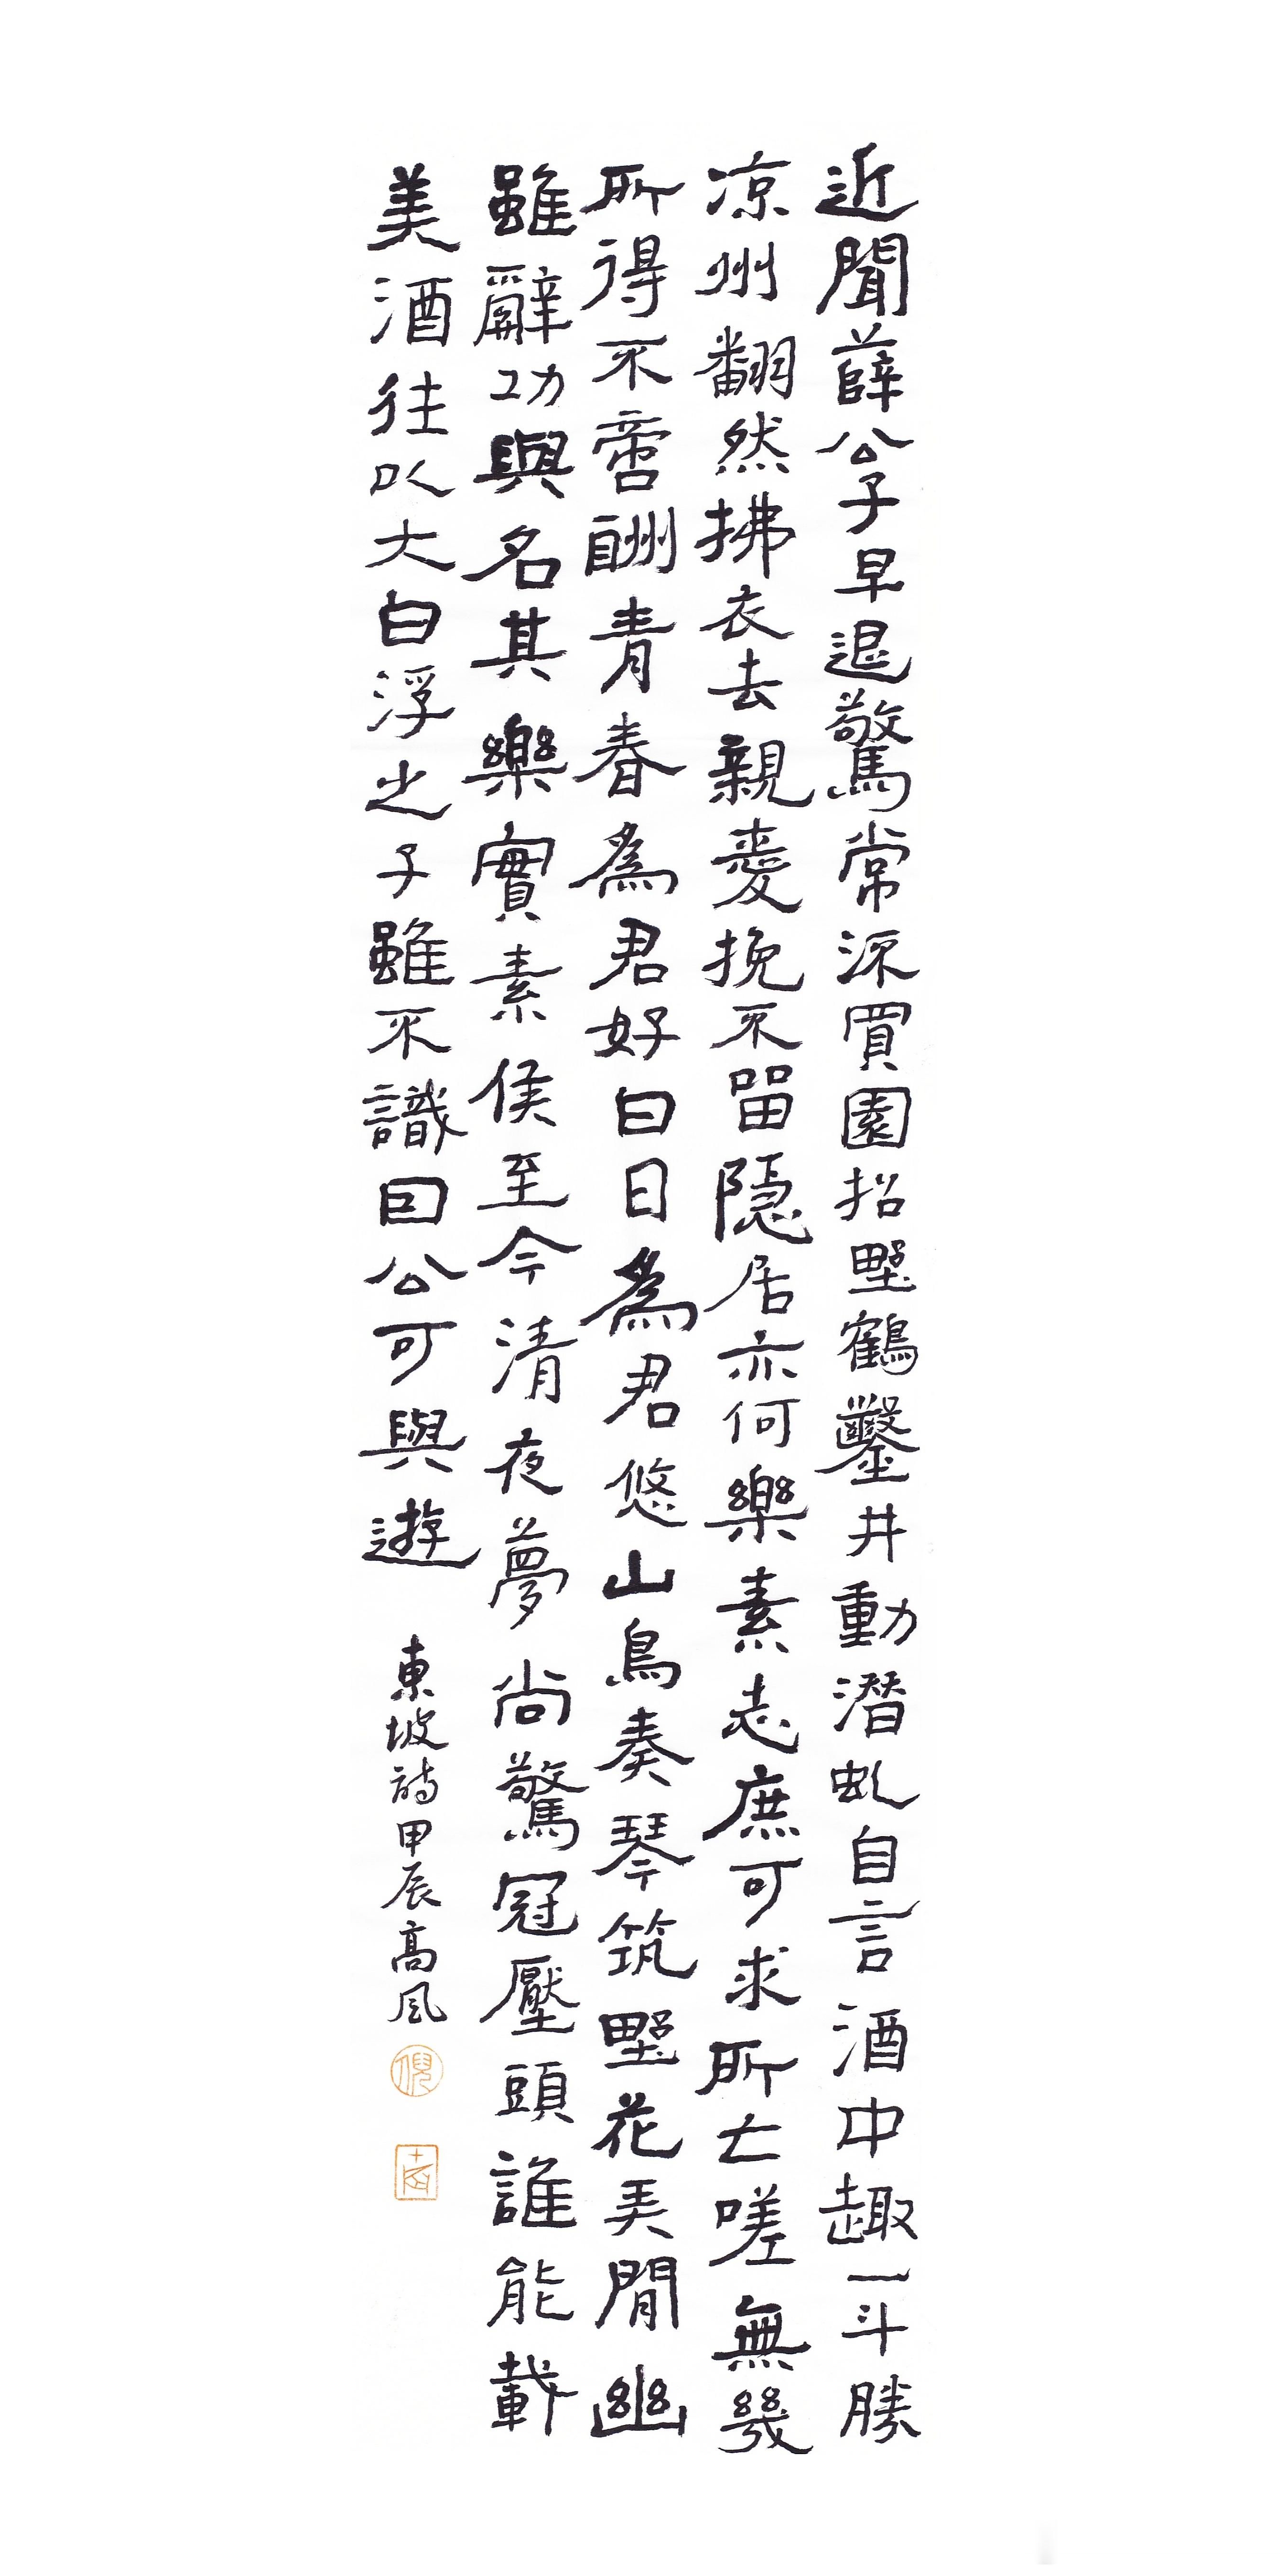 近聞薛公子早退驚常流買園招野鶴鑿井動潛虬自言酒中趣一斗勝
涼州翻然拂衣去親愛挽不留隱居亦何樂素志庶可求所亡嗟無幾
所得不啻酬青春為君好白日為君悠山鳥奏琴筑野花弄閒幽
雖辭功與名其樂實素侯至今清夜夢尚驚冠壓頭誰能載
美酒往以大白浮之子雖不識因公可與遊
東坡詩甲辰高風
倪